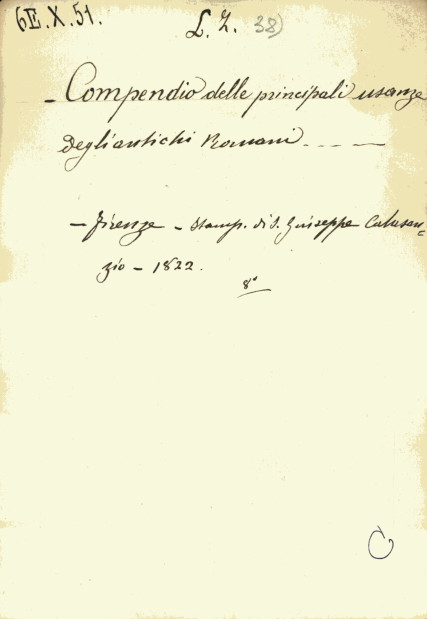 6E.X.51.
L. Z. 38)
- Compendio delle principali usanze
degli antichi Romani - - - —
- Firenze - Stamp. di S. Giuseppe Calasan=
zio - 1822.
8°
C